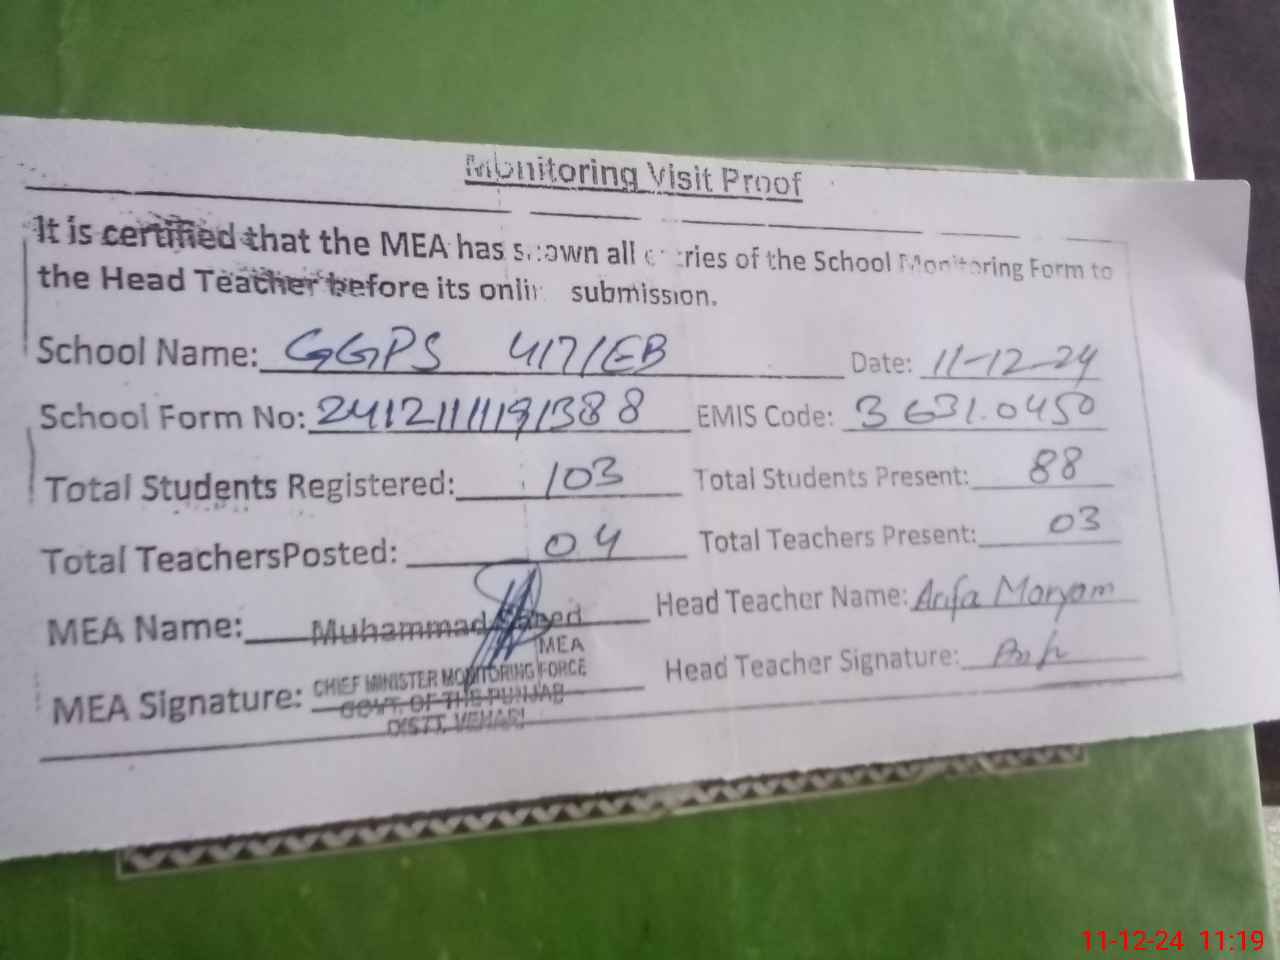 Monitoring Visit Proof
It is certified that the MEA has shown all entries of the School Monitoring Form to
the Head Teacher before its online submission.
School Name: GGPS 417/EB Date: 11-12-24
School Form No: EMIS Code: 36310450
Total Students Registered: 103 Total Students Present: 88
Total TeachersPosted: 04 Total Teachers Present: 03
MEA Name: Muhammad Saeed Head Teacher Name: Arifa Maryam
MEA
MEA Signature: CHIEF MINISTER MONITORING FORCE Head Teacher Signature:
GOVT. OF THE PUNJAB
DISTT. VEHARI
11-12-24 11:19